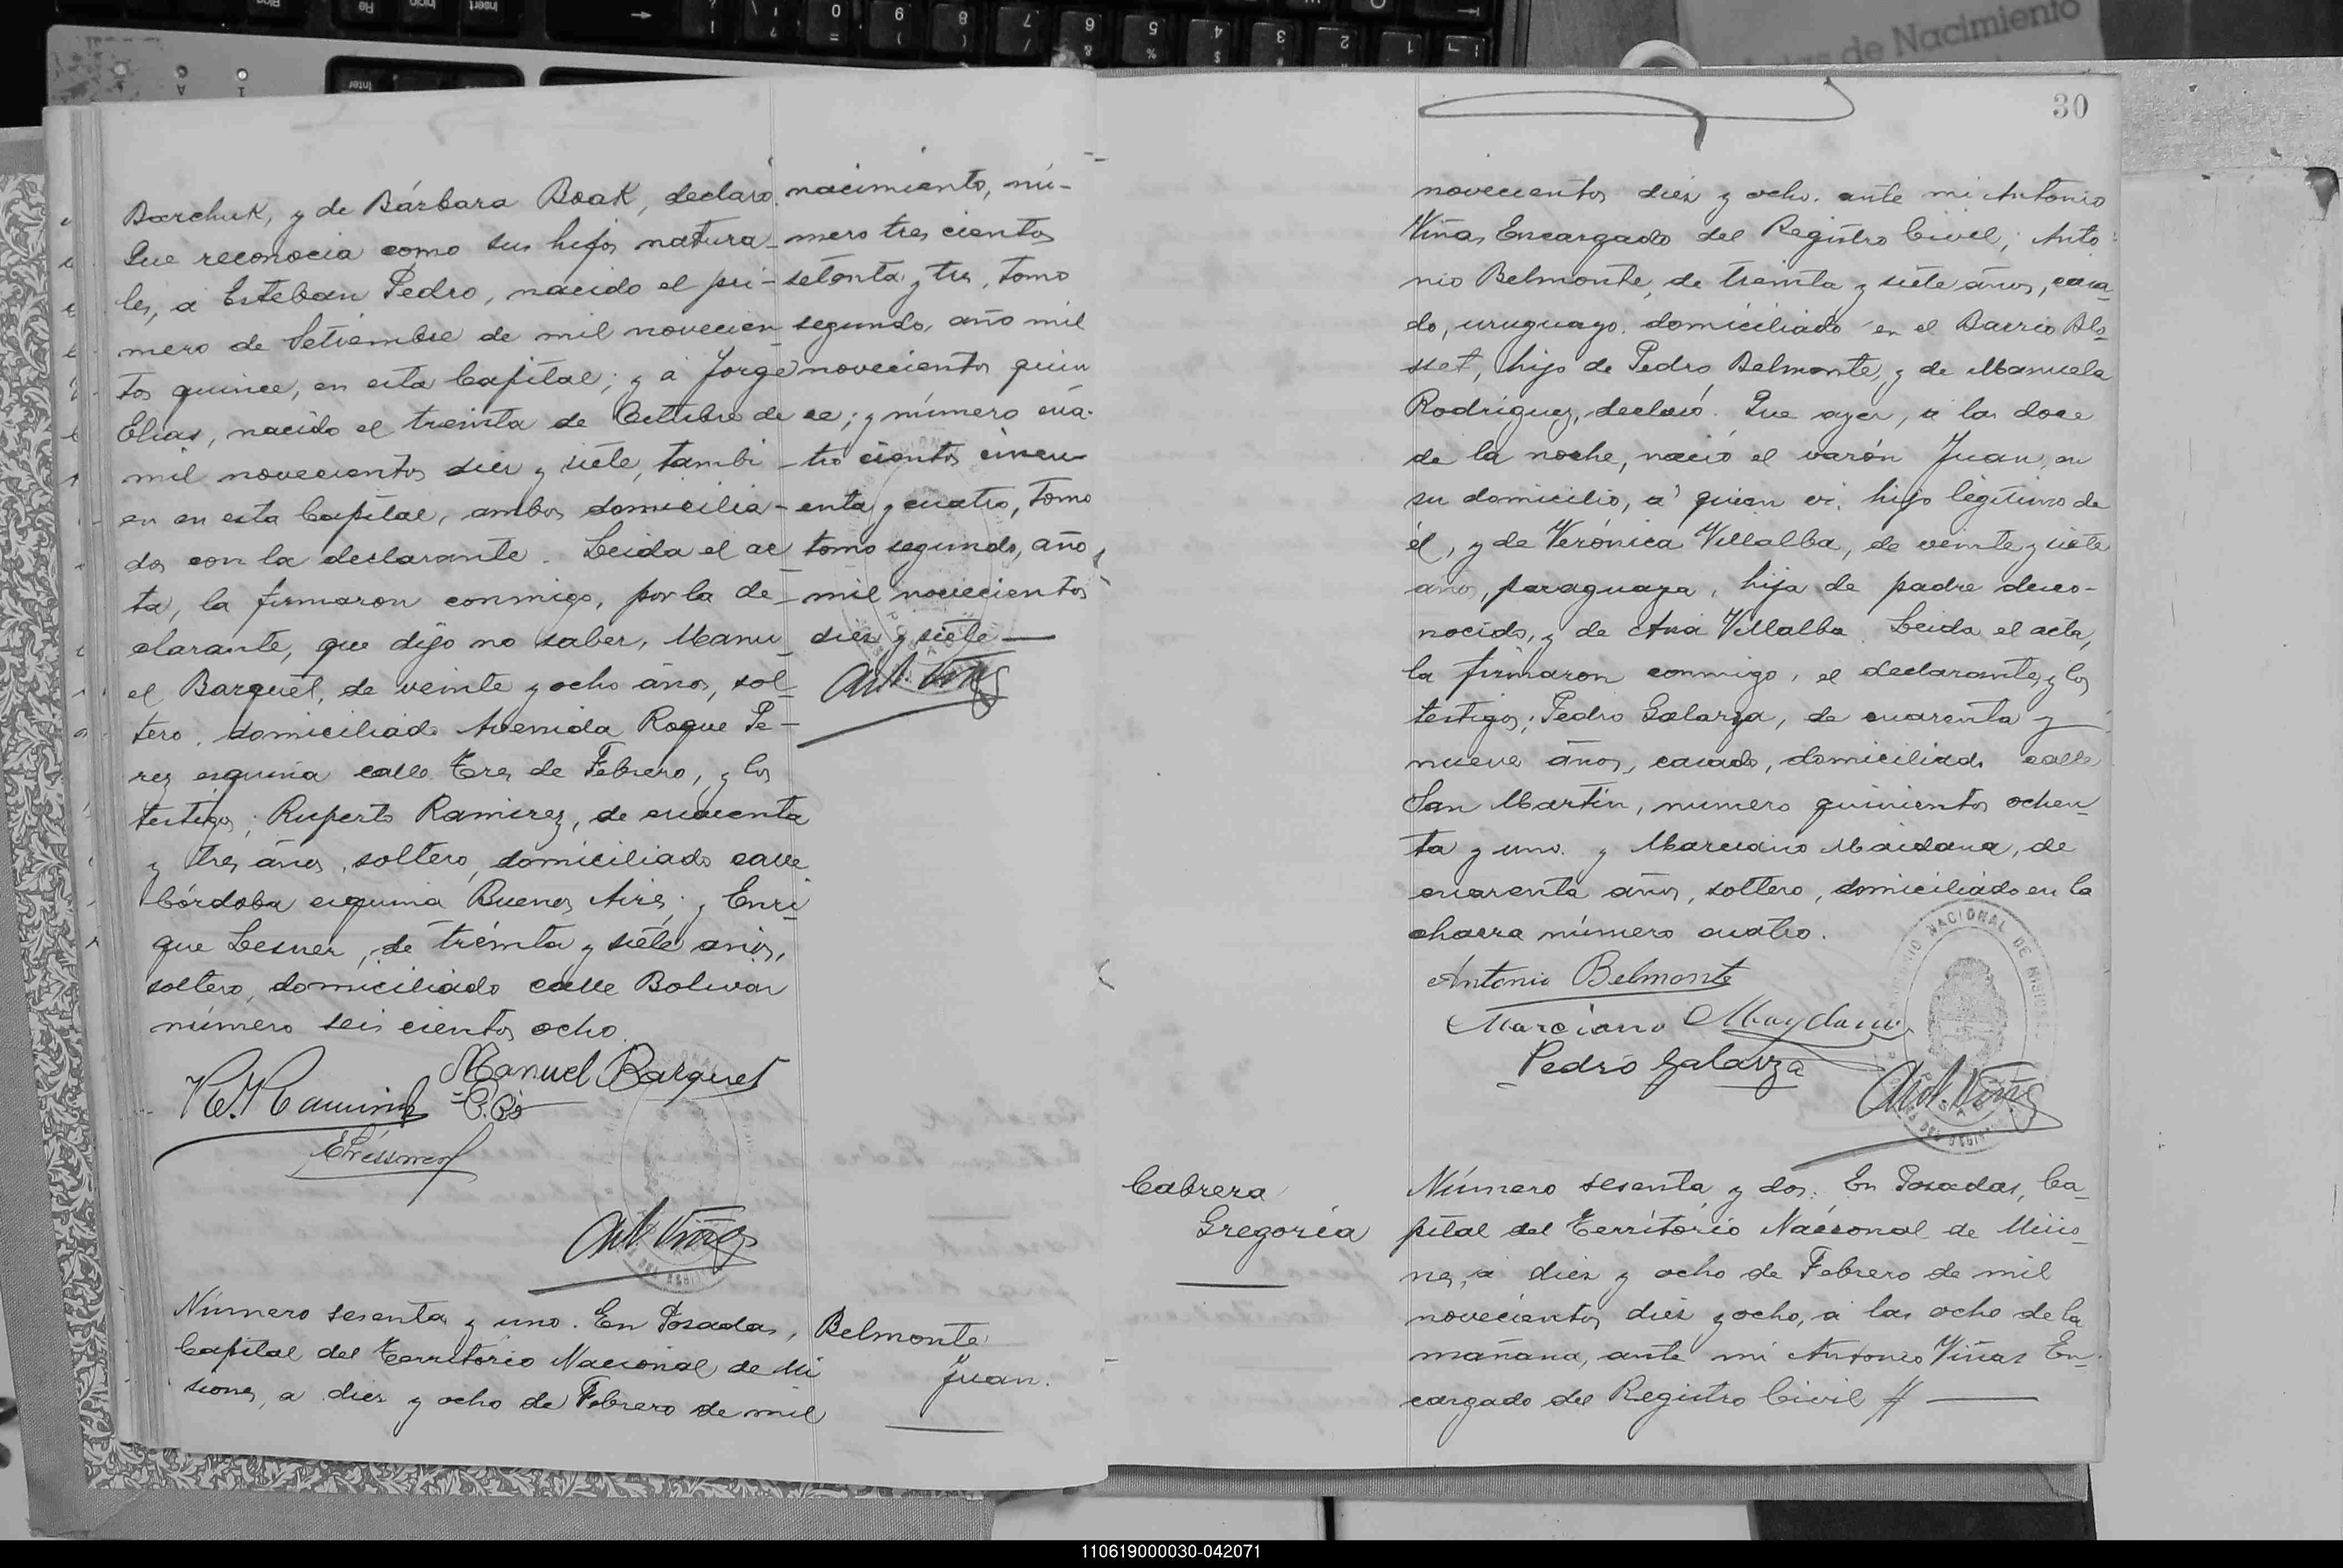 Barchuk, y de Bárbara Boak, declaró.
Que reconocia como sus hijos natura-
les, a Esteban Pedro, nacido el pri-
mero de Setiembre de mil novecien
tos quince, en esta Capital; y a Jorge
Elias, nacido el treinta de Octubre de
mil novecientos diez y siete, tambi
en en esta Capital, ambos domicilia-
dos con la declarante. Leida el ac
ta, la firmaron conmigo, por la de-
clarante, que dijo no saber, Manu
el Barquet, de veinte y ocho años, sol-
tero, domiciliado Avenida Roque Pe-
rez esquina calle Tres de Febrero, y los
testigos; Ruperto Ramirez, de cincuenta
y tres años, soltero, domiciliado calle
Córdoba esquina Buenos Aires; y Enri-
que Lesner, de treinta y siete años,
soltero, domiciliado calle Bolivar
número seis cientos ocho.
Manuel Barquet
Ant. Viñas
nacimiento, nú-
mero tres cientos
setenta y tres, tomo
segundo, año mil
novecientos quin
ce; y número cua-
tro cientos cincu-
enta y cuatro, tomo
tomo segundo, año
mil novecientos
diez y siete
Ant. Viñas
Número sesenta y uno. En Posadas,
Capital del Territorio Nacional de Mi
siones, a diez y ocho de Febrero de mil
Belmonte
Juan.
30
novecientos diez y ocho. ante mi Antonio
Viñas Encargado del Registro Civil; Anto
nio Belmonte, de treinta y siete años, casa-
do, uruguayo. domiciliado en el Barrio Blo
sset, hijo de Pedro Belmonte, y de Manuela
Rodriguez, declaró. Que ayer, a las doce
de la noche, nació el varón Juan, en
su domicilio, a quien vi, hijo legitimo de
él, y de Verónica Villalba, de veinte y siete
años, paraguaya, hija de padre desco-
nocido, y de Ana Villalba. Leida el acta,
la firmaron conmigo, el declarante, y los
testigos; Pedro Galarza, de cuarenta y
nueve años, casado, domiciliado calle
San Martin, numero quinientos ochen-
ta y uno. y Marciano Maidana, de
cuarenta años, soltero, domiciliado en la
chacra número cuatro.
Antonio Belmonte
Marciano Maydana
Pedro Galarza
Ant. Viñas
Cabrera
Gregoria
Número sesenta y dos. En Posadas, Ca-
pital del Territorio Nacional de Misio-
nes, a diez y ocho de Febrero de mil
novecientos diez y ocho, a las ocho de la
mañana, ante mi Antonio Viñas En-
cargado del Registro Civil
110619000030-042071